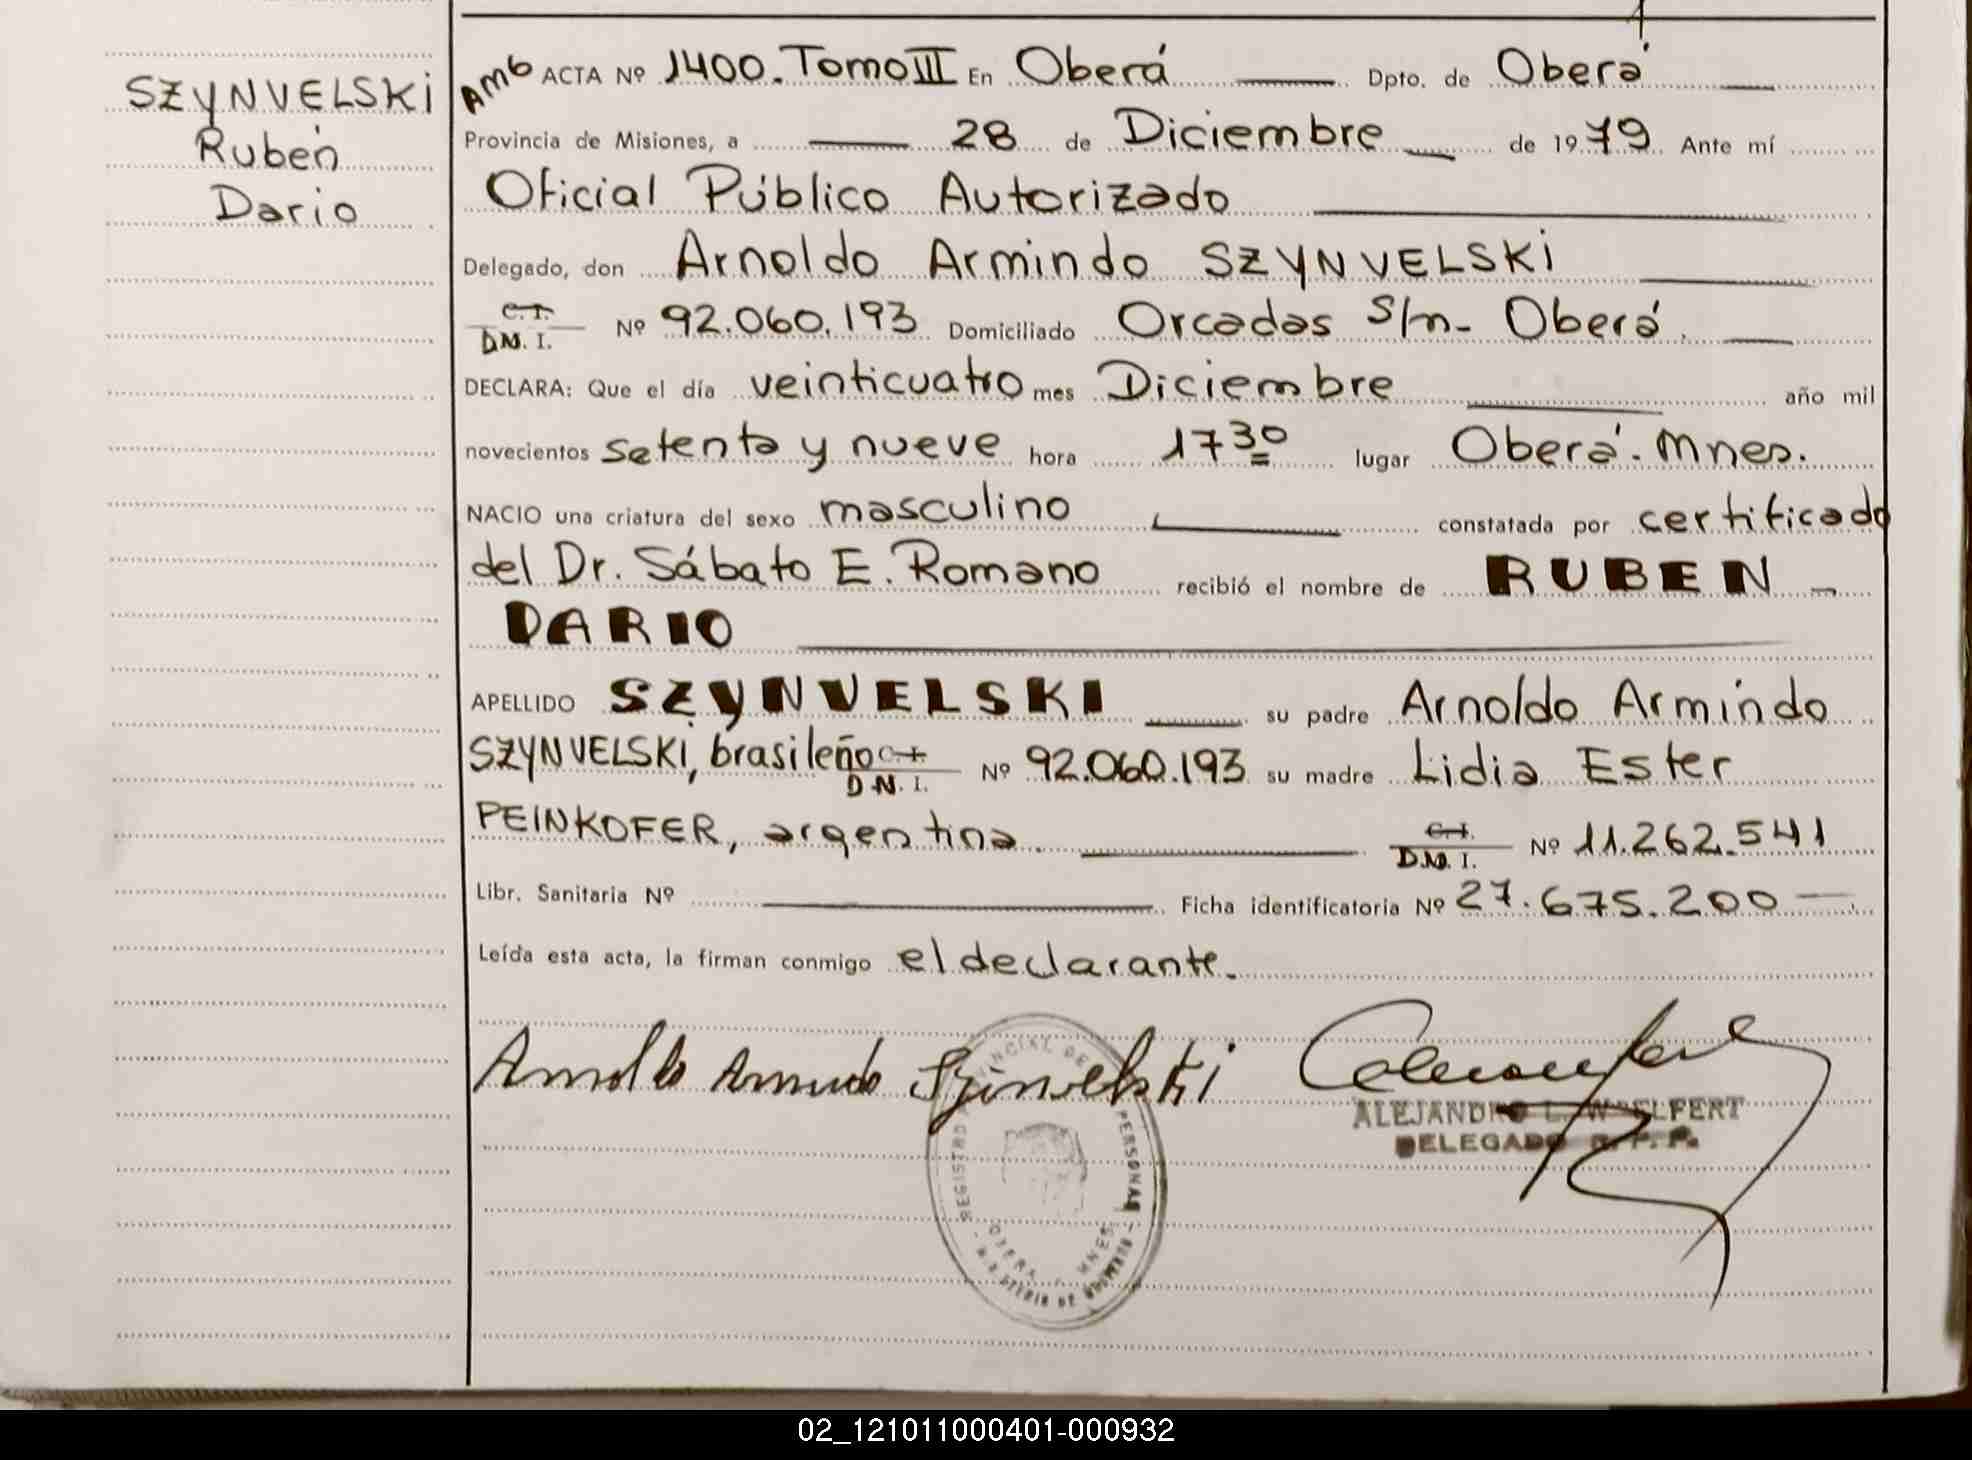 SZYNVELSKI
Rubén
Dario
Amb ACTA Nº 1400. Tomo III En Oberá Dpto. de Oberá
Provincia de Misiones, a 28 de Diciembre de 1979 Ante mí
Oficial Público Autorizado
Delegado, don Arnoldo Armindo SZYNVELSKI
C.I.
D.N.I. Nº 92.060.193 Domiciliado Orcadas S/n- Oberá.
DECLARA: Que el día veinticuatro mes Diciembre año mil
novecientos setenta y nueve hora 17 30 lugar Oberá. Mnes.
NACIO una criatura del sexo masculino constatada por certificado
del Dr. Sábato E. Romano recibió el nombre de RUBEN
DARIO
APELLIDO SZYNVELSKI su padre Arnoldo Armindo
SZYNVELSKI, brasileño D.N.I. Nº 92.060.193 su madre Lidia Ester
PEINKOFER, argentina. C.I. D.N.I. Nº 11.262.541
Libr. Sanitaria Nº Ficha identificatoria Nº 27.675.200
Leída esta acta, la firman conmigo el declarante.
Arnoldo Armindo Szinvelski
ALEJANDRO L. WOELFERT
DELEGADO R.P.P.
REGISTRO PROVINCIAL DE PERSONAS
OBERA MNES
02_121011000401-000932